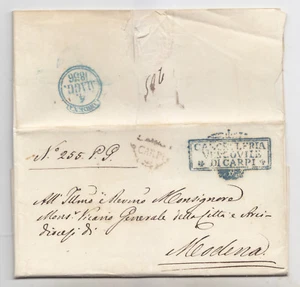 4
MAGG.
1856
285
CARPI
CANCELLERIA
VESCOVILE
DI CARPI
N.° 255. P. G.
All' Illmo e Revmo Monsignore
Monsr Vicario Generale della Città e Arci-
diocesi di
Modena